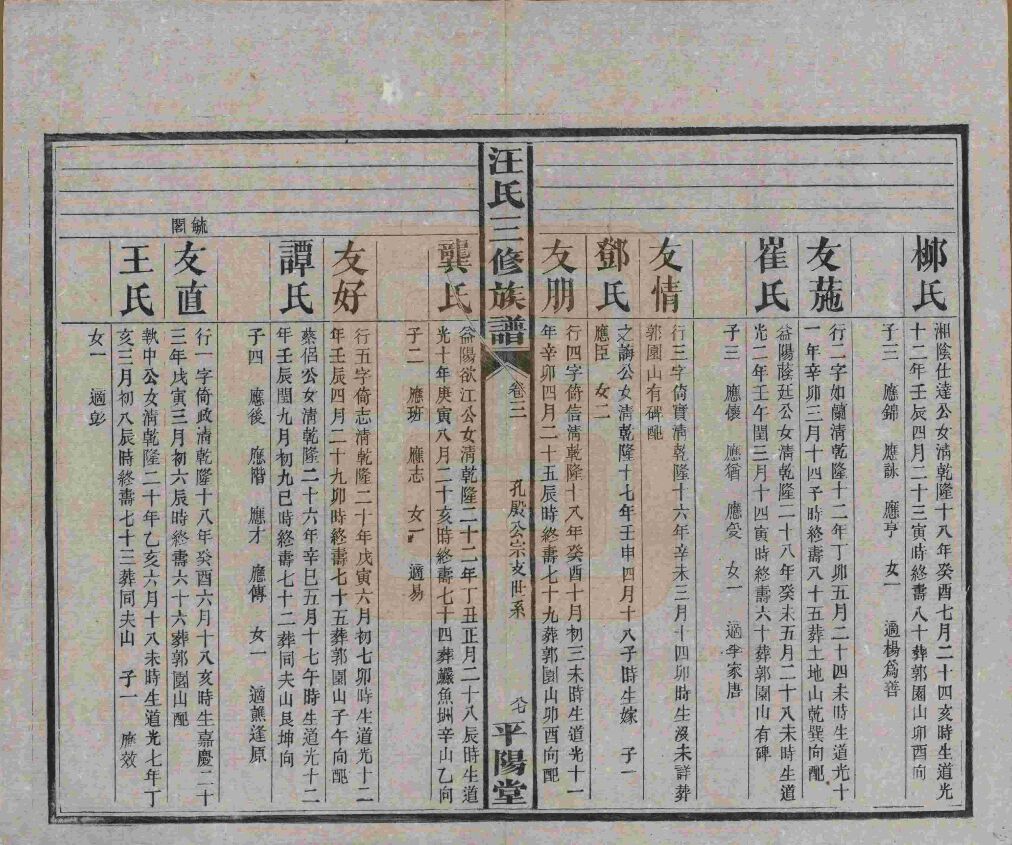 柳氏
湘陰仕達公女淸乾隆十八年癸酉七月二十四亥時生道光
十二年壬辰四月二十三寅時終壽八十葬郭園山卯酉向
子三　應錦　應詠　應亨　女一　適楊爲善
友葹
行二字如蘭淸乾隆十二年丁卯五月二十四未時生道光十
一年辛卯三月十四子時終壽八十五葬土地山乾巽向配
崔氏
益陽蔭廷公女淸乾隆二十八年癸未五月二十八未時生道
光二年壬午閏三月十四寅時終壽六十葬郭園山有碑
子三　應懷　應猶　應　女一　適李家唐
友情
行三字倚實淸乾隆十六年辛未三月十四卯時生沒未詳葬
郭園山有碑配
鄧氏
之誨公女淸乾隆十七年壬申四月十八子時生嫁　子一
應臣　女二
友朋
行四字倚信淸乾隆十八年癸酉十月初三未時生道光十一
年辛卯四月二十五辰時終壽七十九葬郭園山卯酉向配
汪氏三修族譜
卷三
孔殷公宗支世系
平陽堂
龔氏
益陽欲江公女淸乾隆二十二年丁丑正月二十八辰時生道
光十年庚寅八月二十亥時終壽七十四葬鱖魚洲辛山乙向
子二　應班　應志　女一　適易
友好
行五字倚志淸乾隆二十年戊寅六月初七卯時生道光十二
年壬辰四月二十九卯時終壽七十五葬郭園山子午向配
譚氏
蔡侶公女淸乾隆二十六年辛巳五月十七午時生道光十二
年壬辰閏九月初九巳時終壽七十二葬同夫山艮坤向
子四　應後　應階　應才　應傳　女一　適譙逢原
毓閣
友直
行一字倚政淸乾隆十八年癸酉六月十八亥時生嘉慶二十
三年戊寅三月初六辰時終壽六十六葬郭園山配
王氏
執中公女淸乾隆二十年乙亥六月十八未時生道光七年丁
亥三月初八辰時終壽七十三葬同夫山　子一　應效
女一　適彭